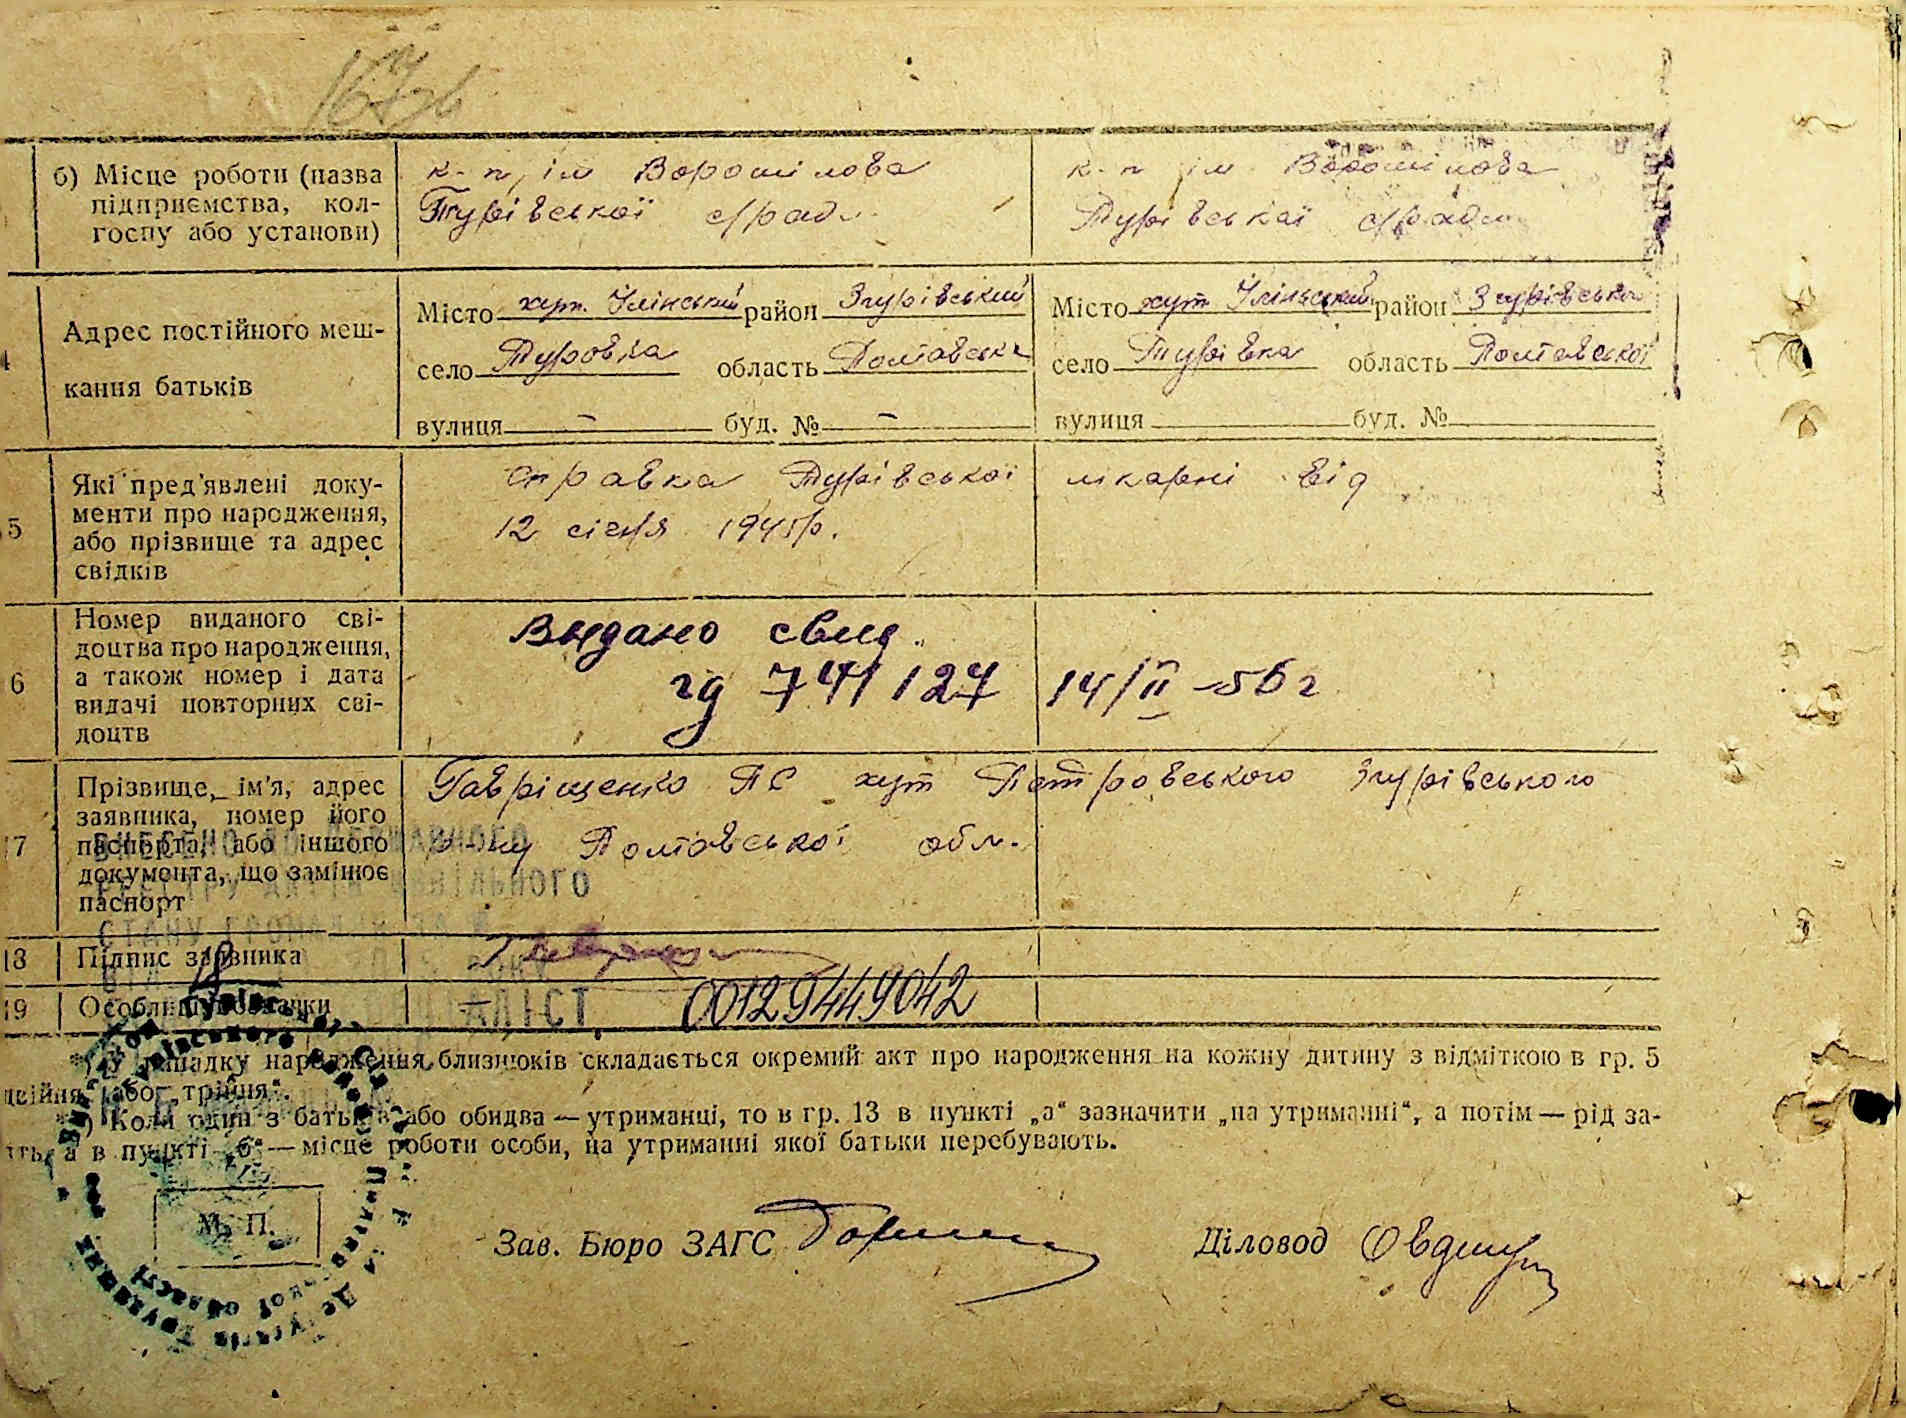 167 зв
б) Місце роботи (назва
підприємства, кол-
госпу або установи)
к-п ім Ворошілова
Турівської с/ради
к-п ім Ворошілова
Турівськаї с/ради
Адрес постійного меш-
кання батьків
Місто хут. Ілінський район Згурівський
село Туровка область Полтавська
вулиця — буд. № —
Місто хут Ілінський район Згурівського
село Турівка область Полтавської
вулиця буд. №
5
Які пред'явлені доку-
менти про народження,
або прізвище та адрес
свідків
справка Турівської лікарні від
12 січня 1945р.
6
Номер виданого сві-
доцтва про народження,
а також номер і дата
видачі повторних сві-
доцтв
Выдано свид.
741127 14/II-56 г
7
Прізвище, ім'я, адрес
заявника, номер його
паспорта, або іншого
документа, що замінює
паспорт
Гавріщенко П С хут Петровського Згурівського
р-ну Полтавської обл.
18
Підпис заявника
19
Особливі відмітки
00129449042
*) У випадку народження близнюків складається окремий акт про народження на кожну дитину з відміткою в гр. 5
двійня“ або „трійня“.
*) Коли один з батьків або обидва — утриманці, то в гр. 13 в пункті „а“ зазначити „на утриманні“, а потім — рід за-
ть, а в пункті „б“ — місце роботи особи, на утриманні якої батьки перебувають.
М. П.
Зав. Бюро ЗАГС
Діловод